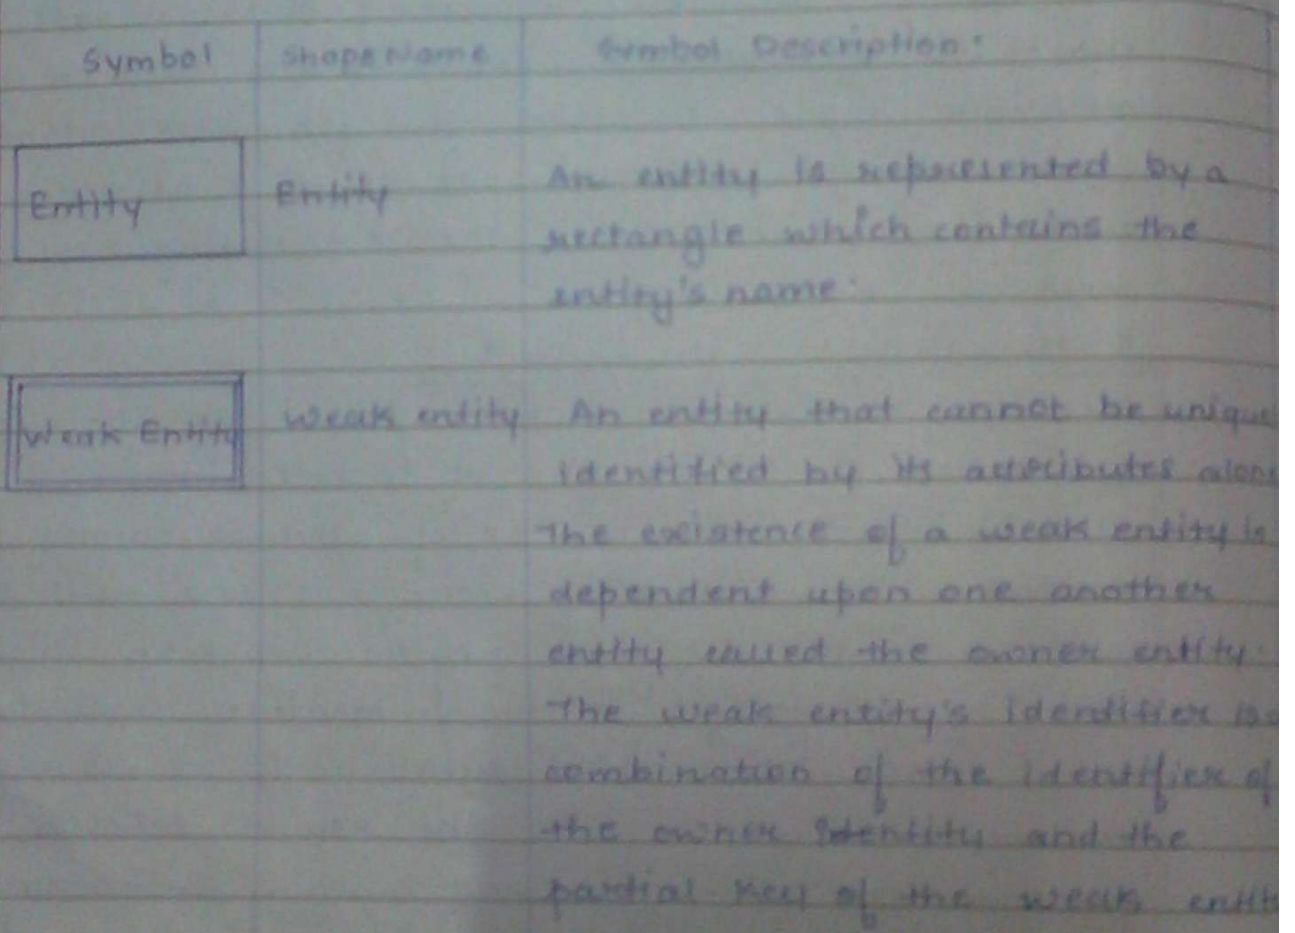 Symbol Shape Name Symbol Description.
Entity Entity An entity is represented by a
rectangle which contains the
entity's name.
Weak Entity Weak entity An entity that cannot be unique
identified by its attributes alone
The existence of a weak entity is
dependent upon one another
entity called the owner entity.
The weak entity's identifier is a
combination of the identifier of
the owner entity and the
partial key of the weak entity